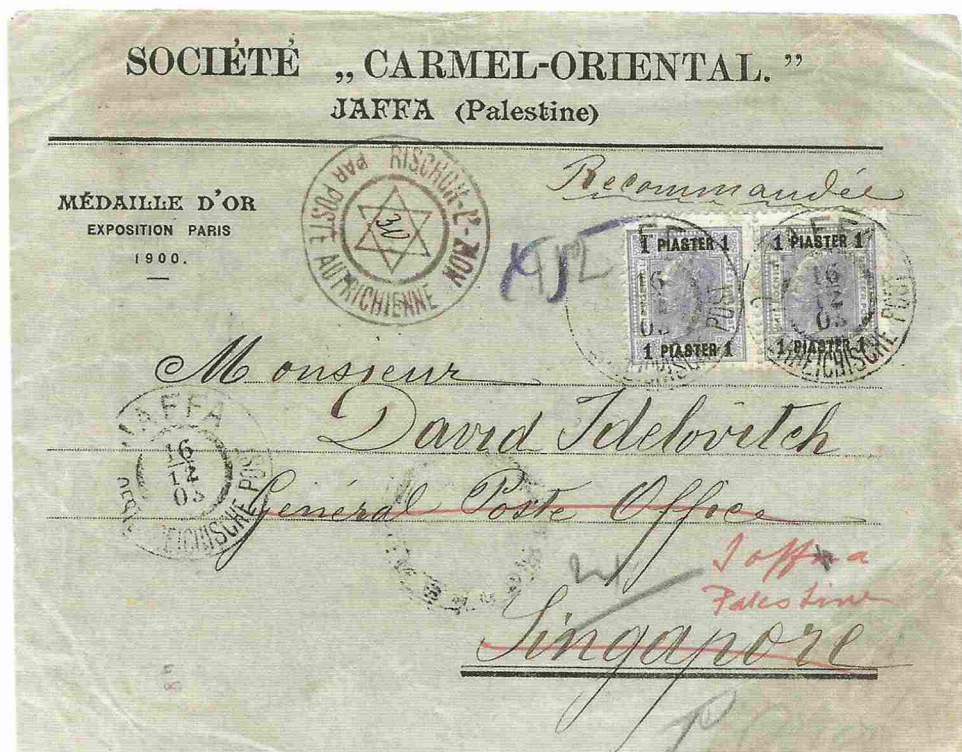 SOCIÉTÉ „ CARMEL-ORIENTAL. ”
JAFFA (Palestine)
MÉDAILLE D'OR
EXPOSITION PARIS
1900.
RISCHON-L'-ZION
PAR POSTE AUTRICHIENNE
30
Recommandée
1 PIASTER 1
1 PIASTER 1
1 PIASTER 1
1 PIASTER 1
16
03
POST
16
12
03
REICHISCHE POST
Monsieur
David Idelovitch
Général Poste Office
Singapore
Joffna
Palestine
JAFFA
16
12
03
REICHISCHE POST